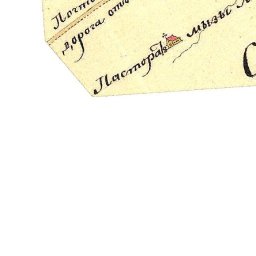 Почто
дорога отъ
Пасторатъ мызы